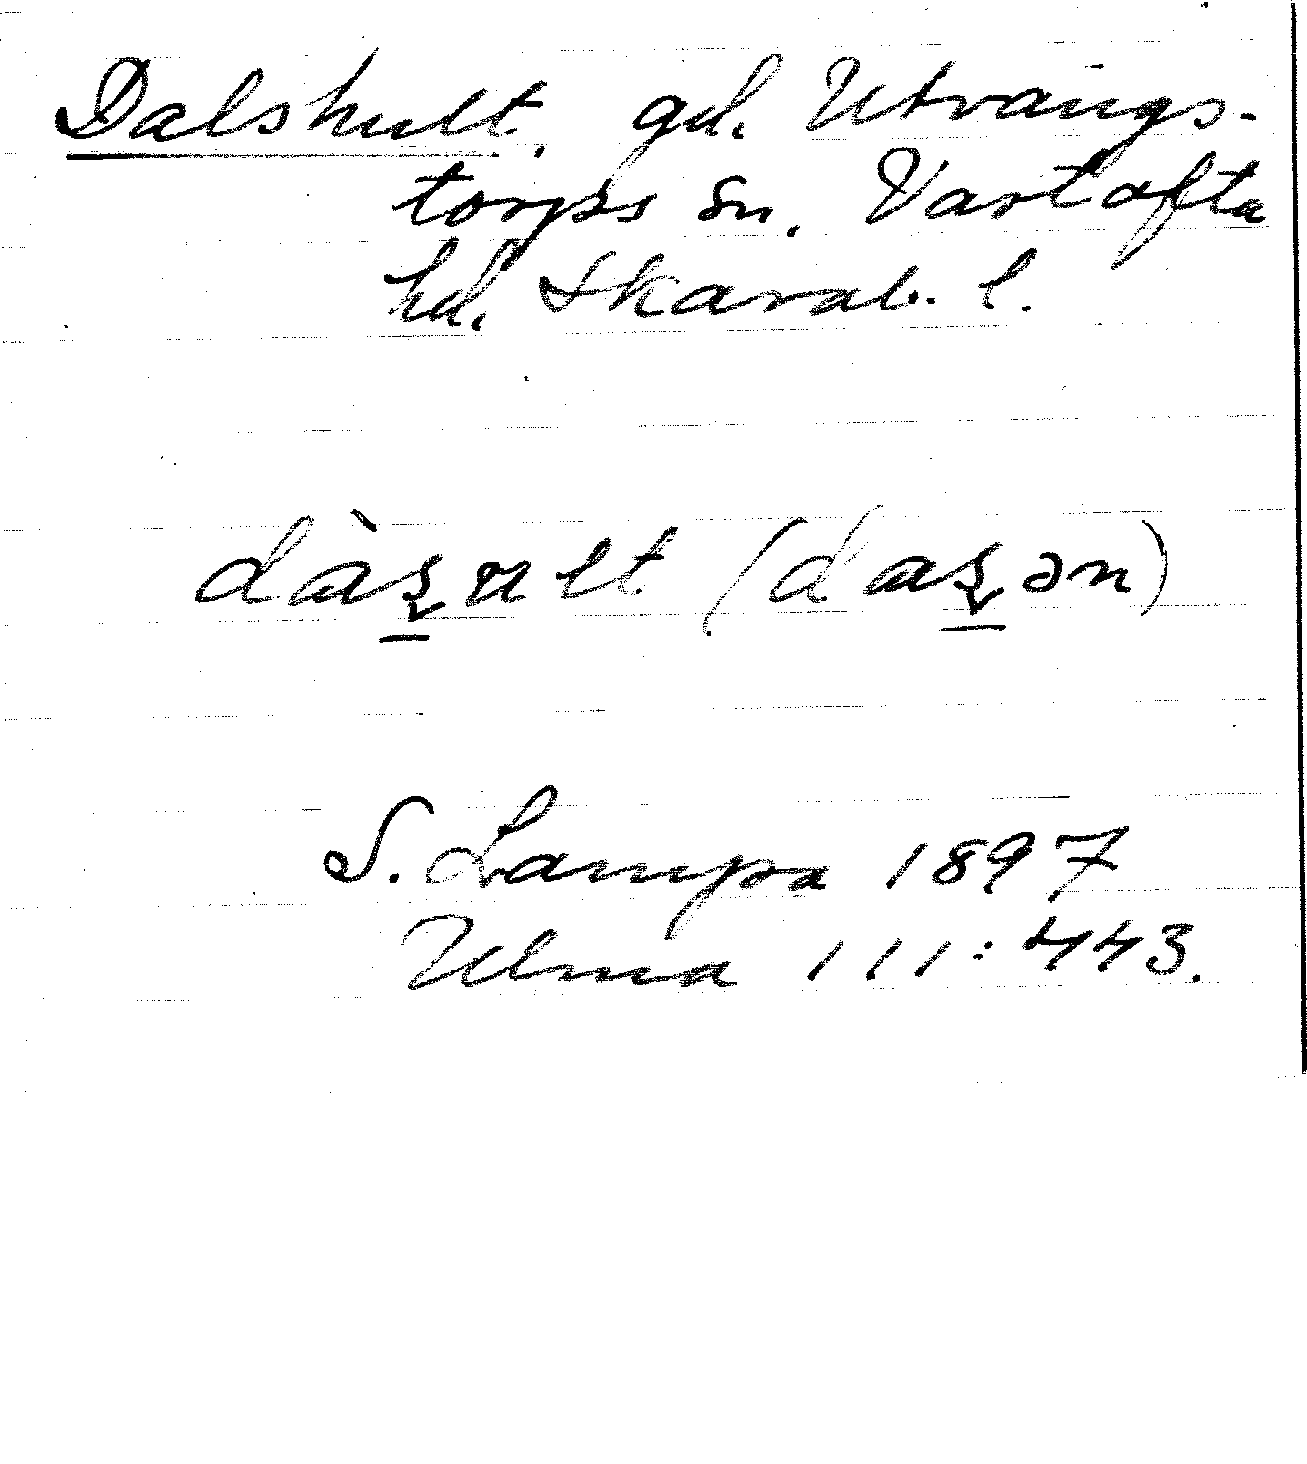 Dalshult, gd. Utvängs-
torps sn. Vartofta
hd. Skarab. l.
dàʂult (daʂən)
S. Lampa 1897
Ulma 111:443.